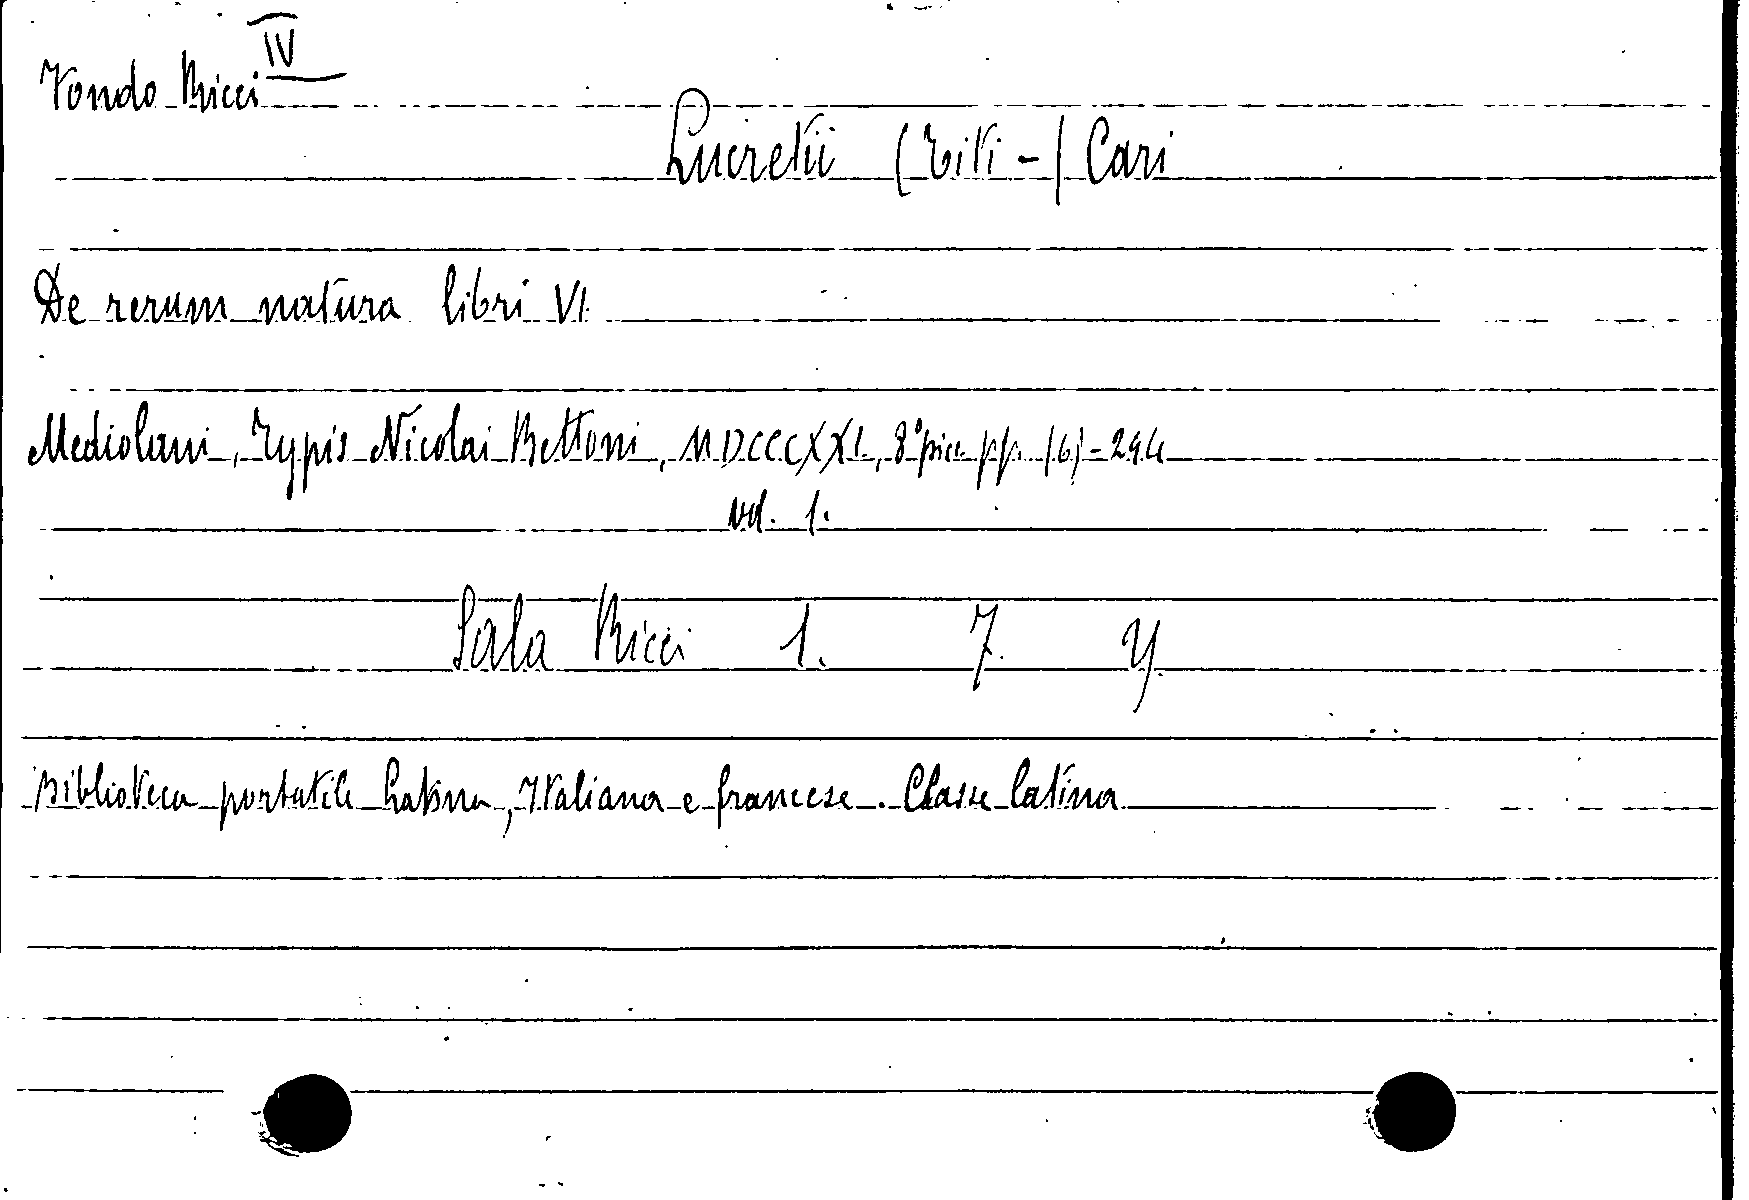 Fondo Ricci IV
Lucretii (Titi-) Cari
De rerum natura libri VI
Mediolani, Typis Nicolai Bettoni, MDCCCXXI, 8° picc. pp. (6)-294
vol. 1.
Sala Ricci 1. 7. y.
Biblioteca portatile Latina, Italiana e francese. Classe latina